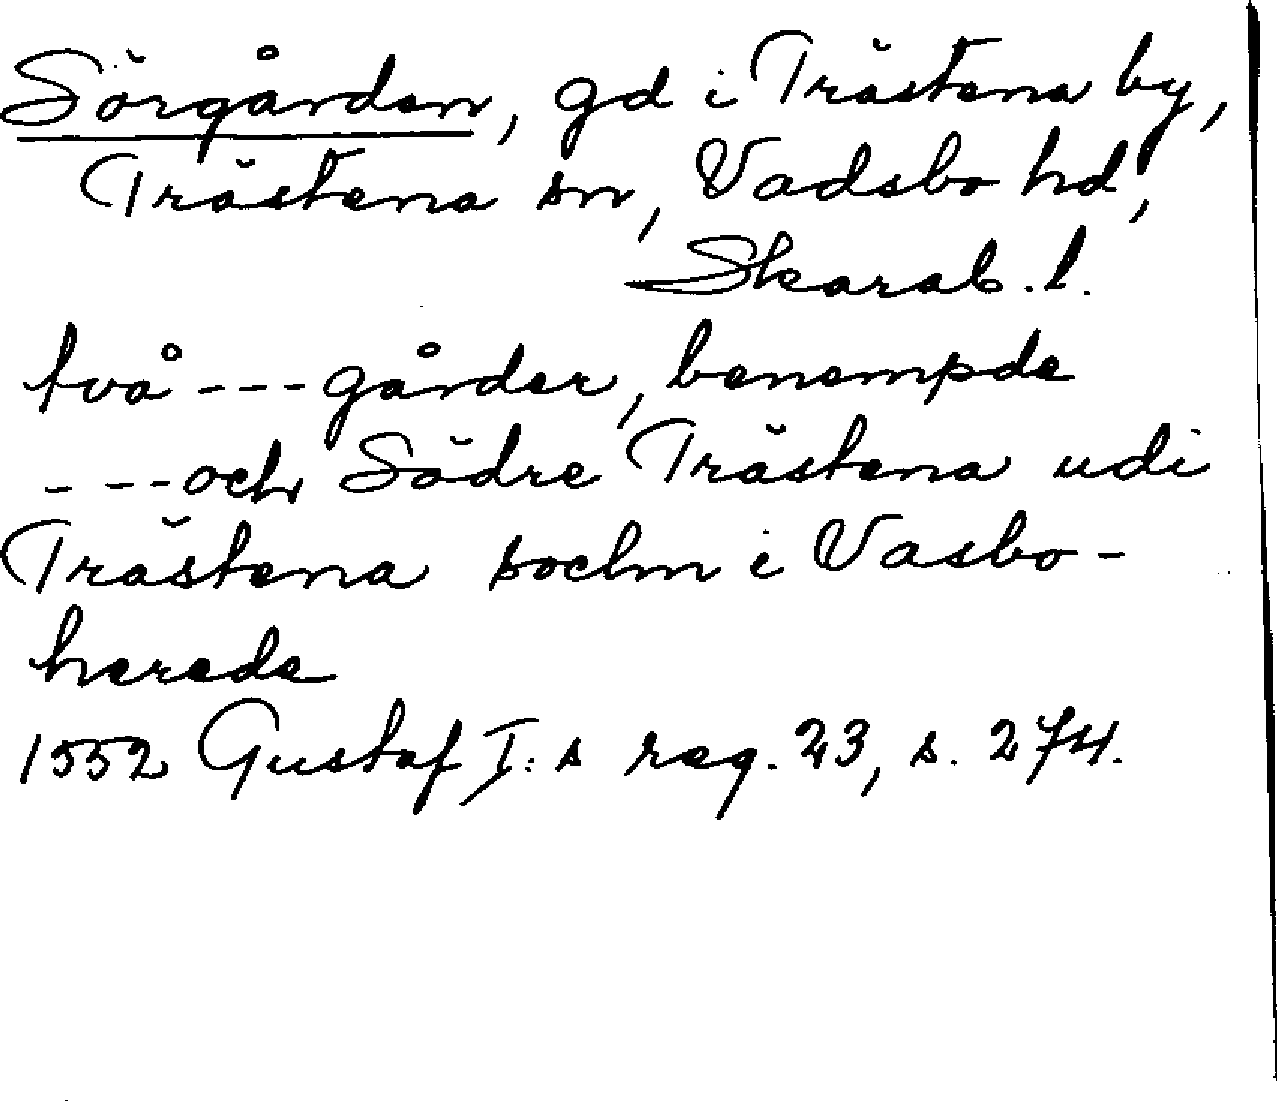 Sörgården, gd i Trästena by,
Trästena sn, Vadsbo hd,
Skarab. l.
två --- gårder, benempde
--- och Södre Trästena udi
Trästena sochn i Vasbo-
herede
1552 Gustaf I:s reg. 23, s. 274.